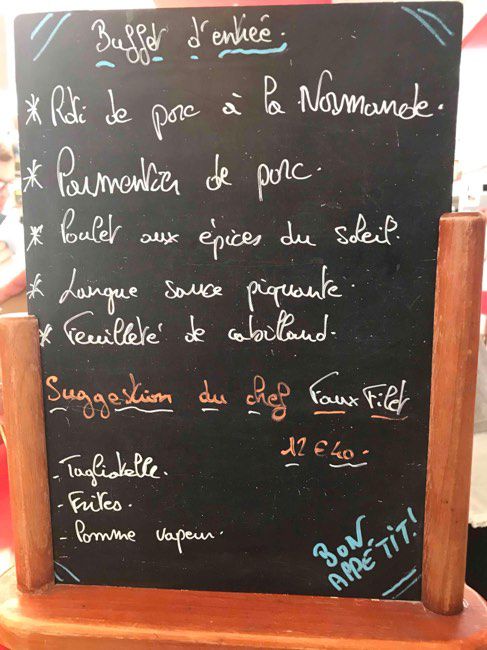 Buffet d'entrée.
* Rôti de porc à la Normande.
* Parmentier de porc.
* Poulet aux épices du soleil.
* Langue sauce piquante.
* Feuilleté de cabillaud.
Suggestion du chef Faux Filet
12 € 40.
- Tagliatelle.
- Frites.
- Pomme vapeur.
BON
APPÉTIT!